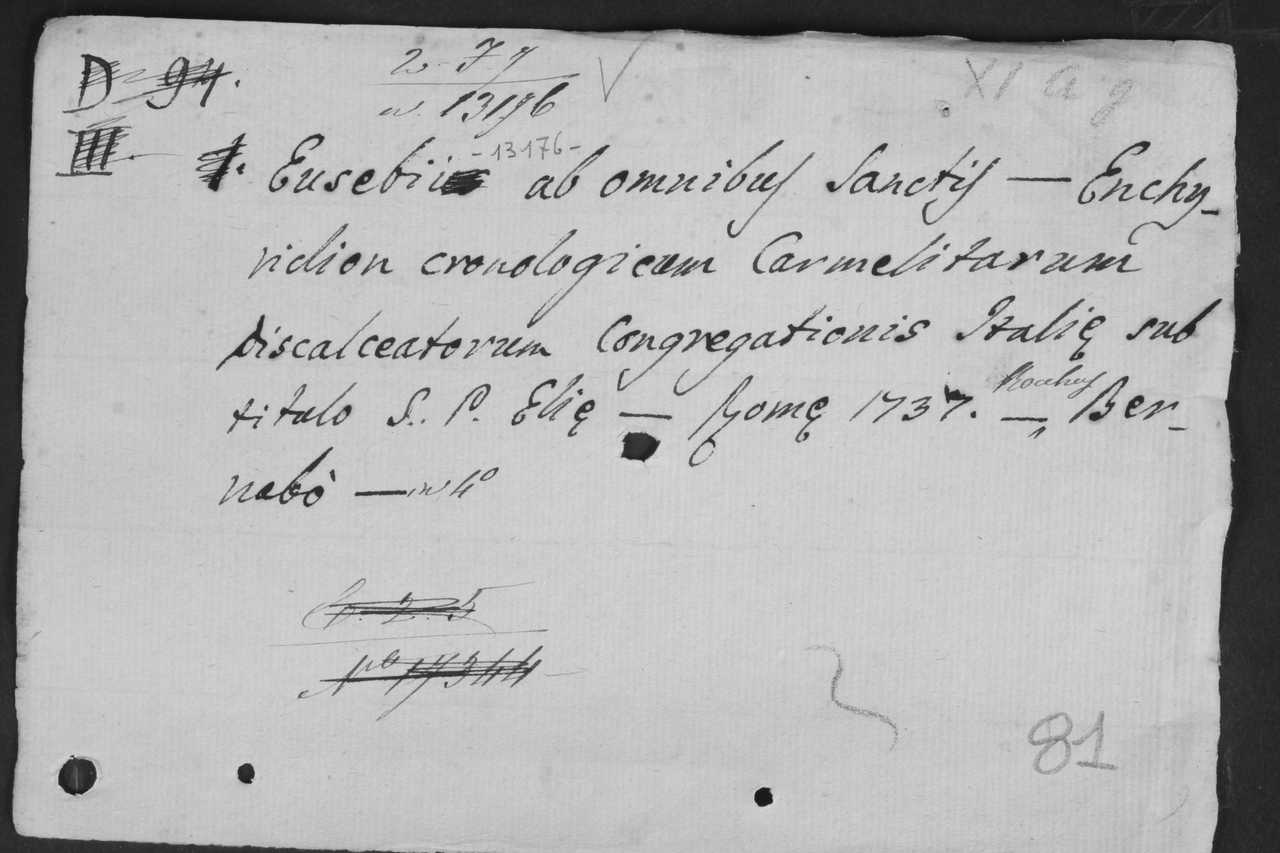 D 94.
2-77
XI a g
n. 13176
III.
-13176-
1. Eusebii ab omnibus Sanctis — Enchy-
ridion cronologicum Carmelitarum
Discalceatorum Congregationis Italię sub
titulo S. P. Elię — Romę 1737. — Rochus Ber-
nabò — in 4º
b. 2. 5
Nº 17344
81